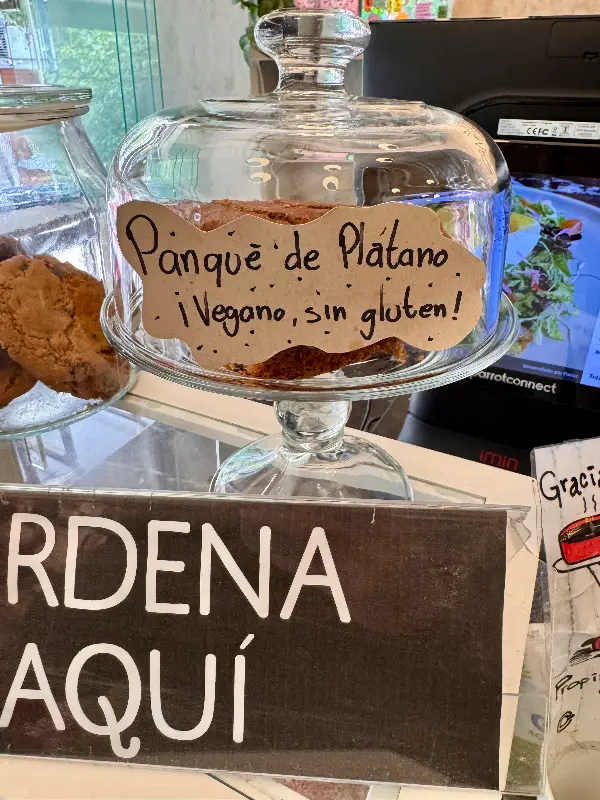 Panquè de Plátano
¡Vegano, sin gluten!
parrotconnect
imin
RDENA
AQUÍ
Gracia
Propi